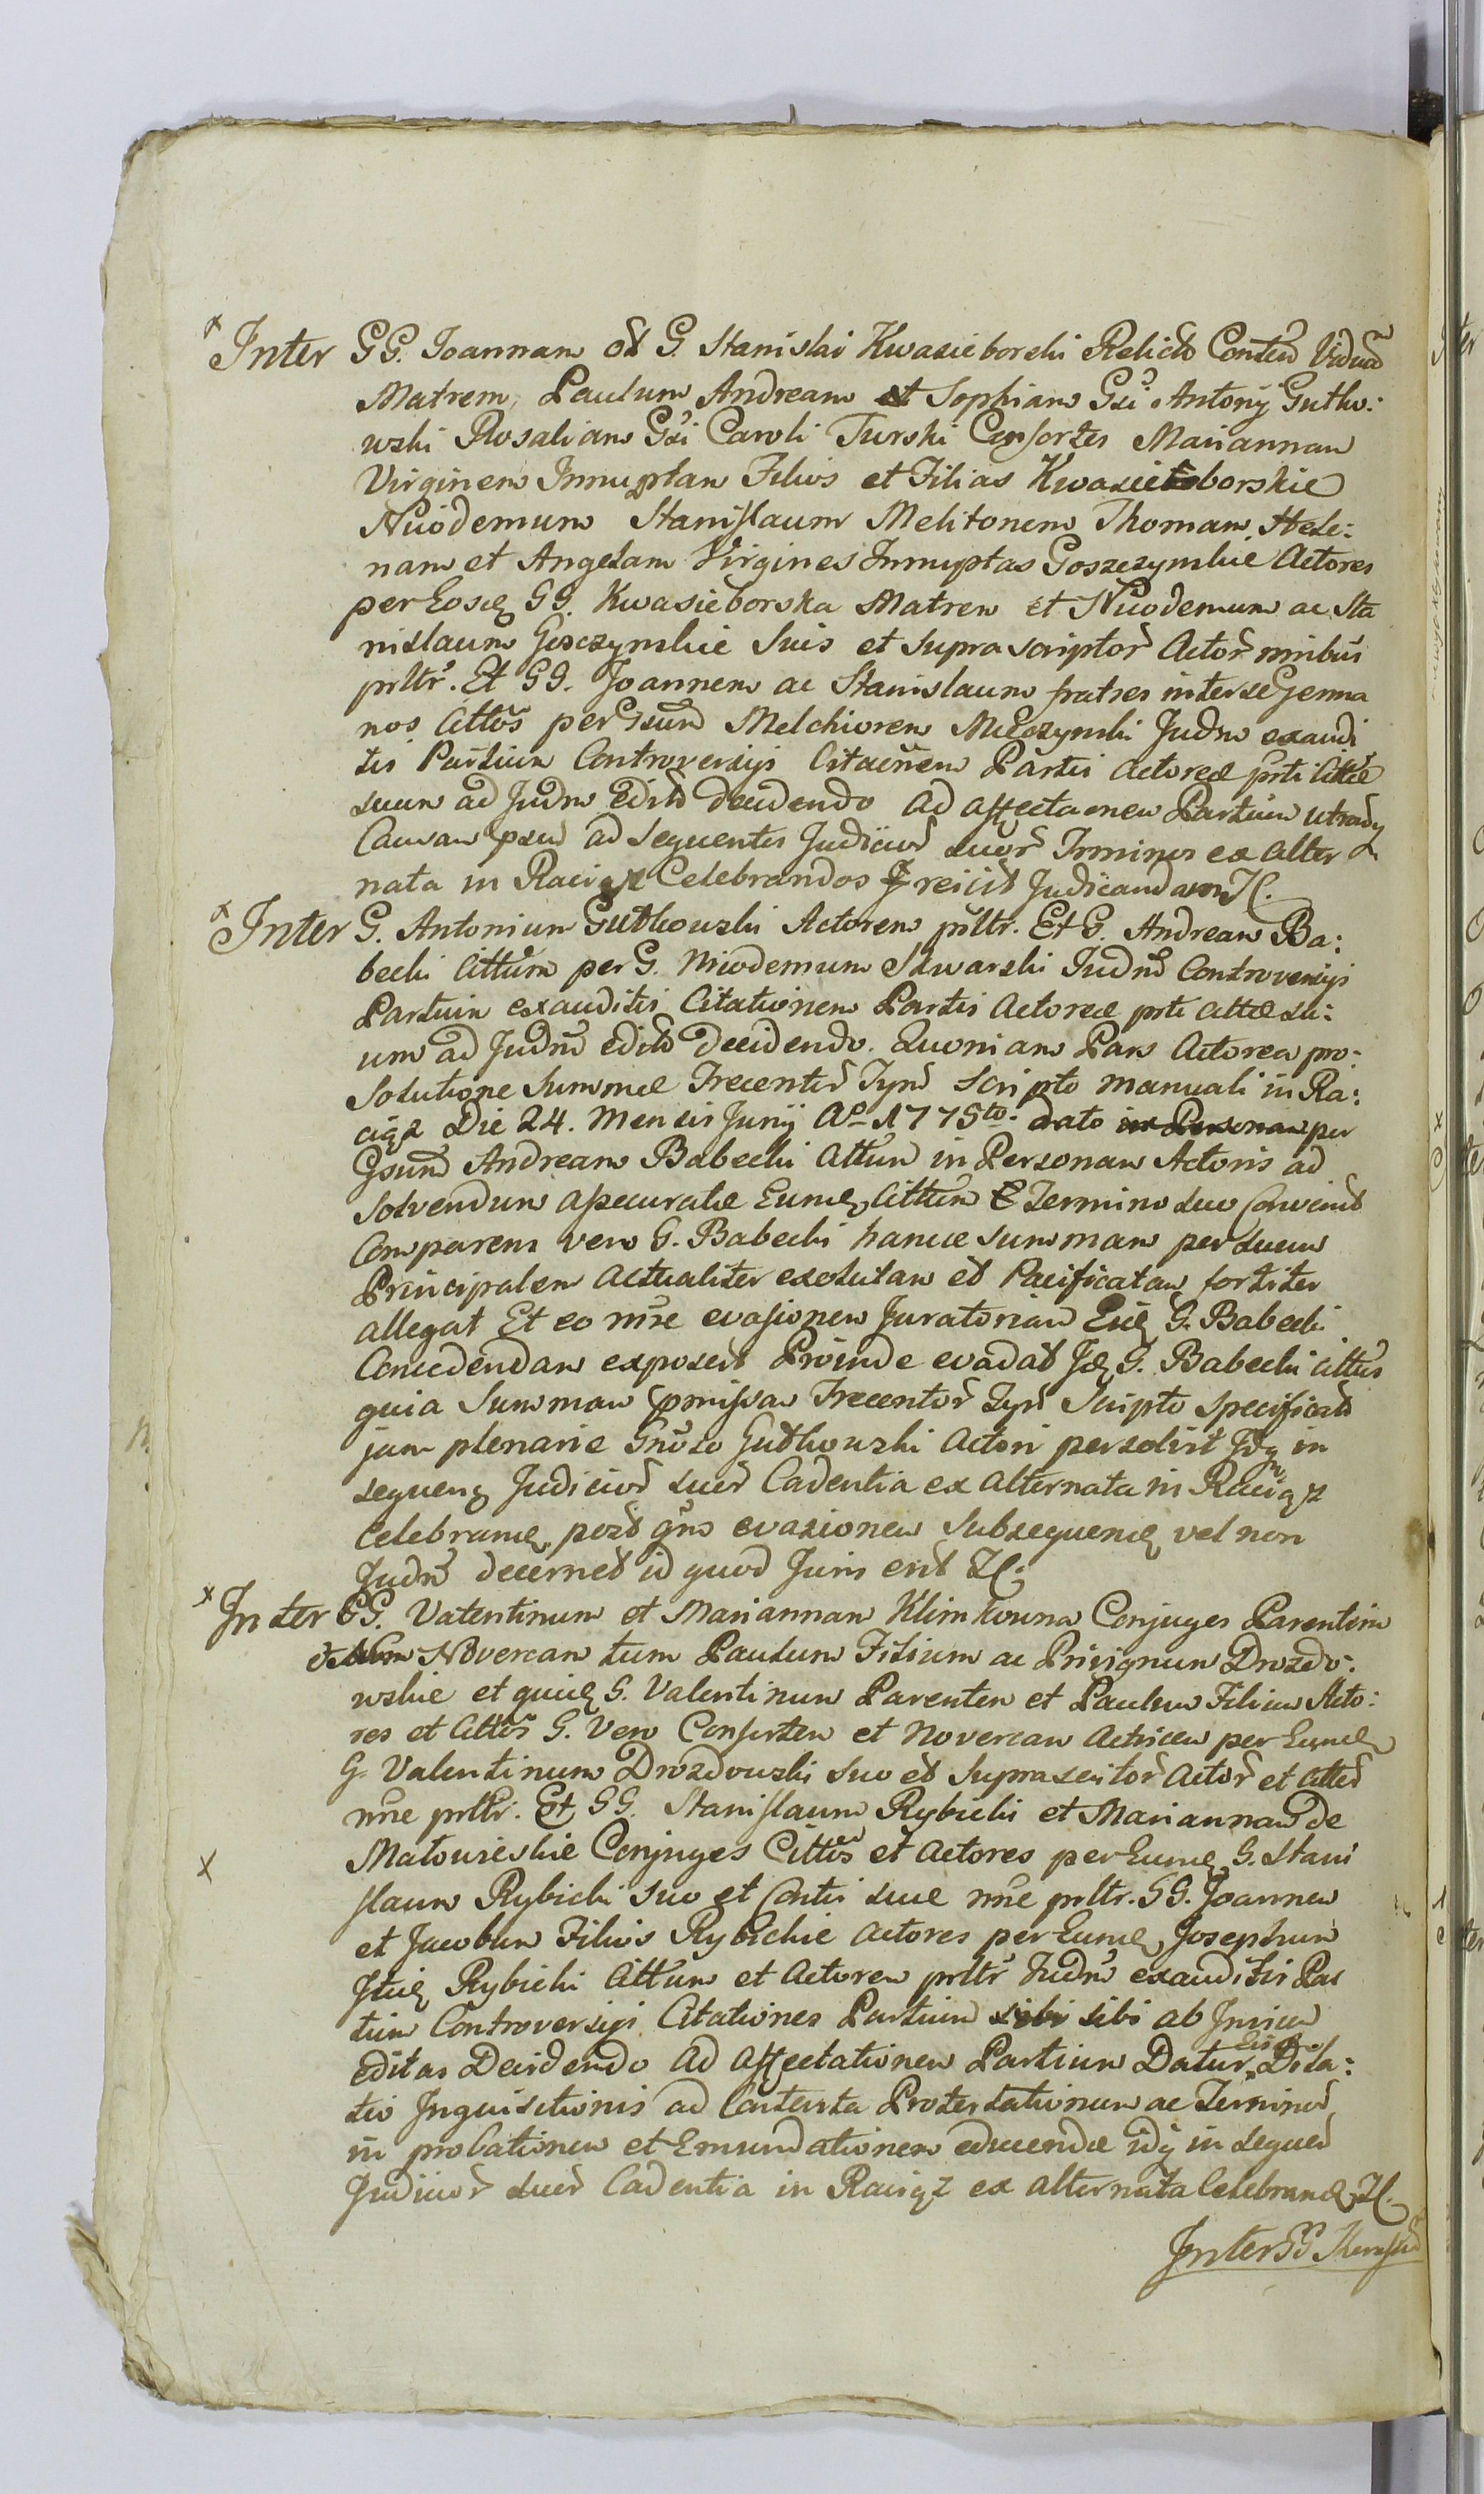 Inter GG. Joannam olt G. Stanislai Kwasieborski Relictã Contem Viduã
Matrem, Paulum Andream et Sophiam Gsi Antonij Gutko:
wski Rosaliam Gsi Caroli Turski Consortes Mariannam
Virginem Innuptam Filios et Filias Kwasieborskie
Nicodemum Stanislaum Melitonem Thomam, Hele:
nam et Angelam Virgines Innuptas Goszczynskie Actores
per Eosq GG. Kwasieborska Matrem et Nicodemum ac Sta
nislaum Goszczynskie suis et suprascriptor Actor nnibus
prltr. Et GG. Joannem ac Stanislaum fratres inter se Germa
nos Cittos per Gsum Melchiorem Judm exaudi
tis Partium Controversijs Citaonem Partis Actoreæ prti Cittæ
suum ad Judm editã decidendo ad affectaonem Partium utrasq
Causam psen ad sequentes Judicior suor Trminos ex alter
nata in Raciąż Celebrandos reicit Judicandam H.
Inter G. Antonium Gutkowski Actorem prltr. Et G. Andream Ba:
becki Cittum per G. Nicodemum Skwarski Judm Controversijs
Partium exauditis Citationem Partis Actoreæ prti Cittæ su:
um ad Judm editã Decidendo. Quoniam Pars Actorea pro
solutione summæ Trecentor Tynf Scripto manuali in Ra:
ciąż Die 24. Mensis Junij Ao 1775to. dato in Personam per
Gsum Andream Babecki Cittum in Personam Actoris ad
solvendum assecuratæ Eumq Cittum Termino suo Convenit
Comparens vero G. Babecki hance summam per suum
Principalem actualiter exolutam et Pacificatam fortiter
allegat Et eo nne evasionem Juratoriam Eiq G. Babecki
Concedendam exposcit Proinde evadat Jdq G. Babecki Cittus
quia summam pmissam Trecentor Tynf Scripto specificatã
jam plenarie Gnoso Gutkowski Actori persolvit Jdq in
sequenq Judicior suor Cadentia ex alternata in Raciąż
Celebranq, post qm evasionem subsequenq vel non
Judm decernet id quod Juris erit H.
Inter GG. Valentinum et Mariannam Klimkowna Conjuges Parentem
Novercam tum Paulum Filium ac Privignum Drozdo:
wskie et quiq G. Valentinum Parentem et Paulum Filium Acto:
res et Cittos G. Vero Consortem et Novercam Actricem per Eumq
G. Valentinum Drozdowski suo et suprascritor Actor et Citter
nne prltr. Et GG. Stanislaum Rybicki et Mariannam de
Matowieskie Conjuges Cittos et Actores per Eumq G. Stani
slaum Rybicki suo et Contis suæ nne prltr. GG. Joannem
et Jacobum Filios Rybickie Actores per Eumq Josephum
Rybicki Cittum et Actorem prltr Judm exauditis Par
tium Controversijs Citationes Partium sibi sibi ab Invicem
editas Decidendo ad affectationem Partium Datur Eis Dila:
tio Inquisitionis ad Contenta Protestationum ac Terminor
in probationem et Emundationem educendæ idq in sequen
Judicior suor Cadentia in Raciąż ex alternata Celebranq H.
Inter GG